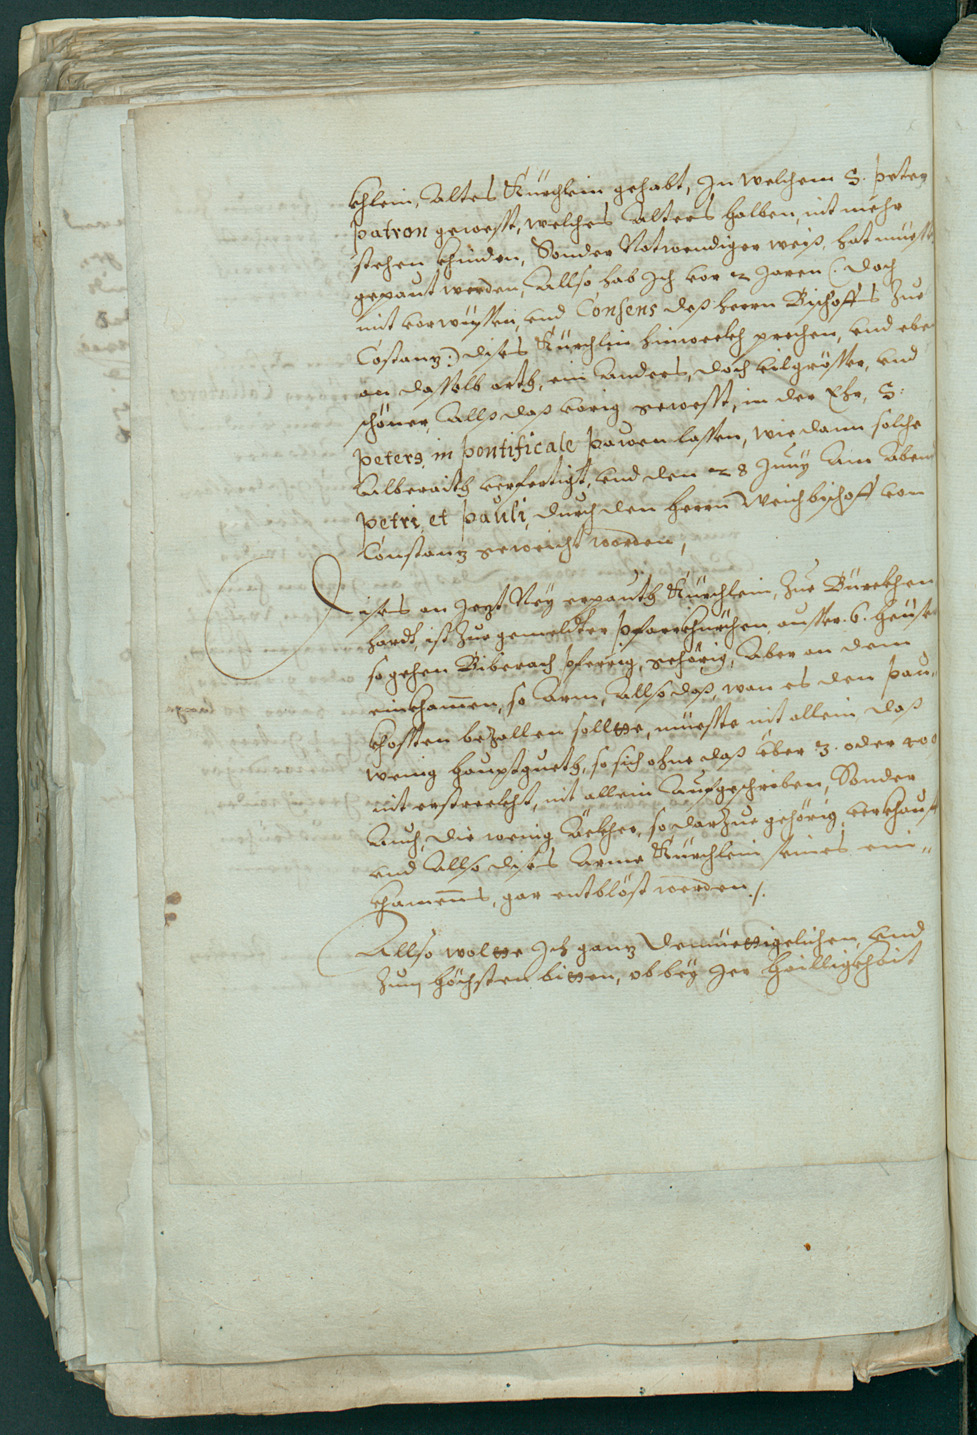 khlein, altes Kürchlein gehabt, In welchem S. peter
patron gewesst, welches alters halben, nit mehr
stehen khinden, Sonder Notwendiger weiß, hat müessen
gepaut werden, Allso hab Ich vor 2 Jaren (: doch
mit vorwissen, und Consens deß herrn Bischoffs zue
Costanz :) dises Kürchlin hinweckh prechen, und eben
an dasselb orth, ein anders, doch vil grösser, und
schöner, allß daß vorig gewesst, in der Ehr, S:
peters in pontificale pawen lassen, wie dann solche
alberaith verfertigt, und den 28 Junij am Abent
petri, et pauli, durch den herrn Weichbischoff von
Constanz geweicht worden,
Dises an Jezt Neẅ erpauth Kürchlein, zue Bürckhen
hardt, ist zue gemeldter pfarrkhürchen ausser 6. heüser
so gehen Biberach pferrig, gehörig, Aber an dem
einkhammen, so arm, allso daß, wan es den pau-
khossten bezallen solltte, müesste nit allein daß
wenig hauptgueth, so sich ohne daß über 3. oder 400
nit erstreckht, nit allein aufgeschriben, Sonder
auch, die wenig äckher, so darzue gehörig, verkhaufft
und allso dises arme Kürchlein seines ein-
khamens, gar entblöst werden ./.
Allso woltte Ich ganz demüettigelichen, und
zum höchsten bitten, ob bey Irer heilligkheit